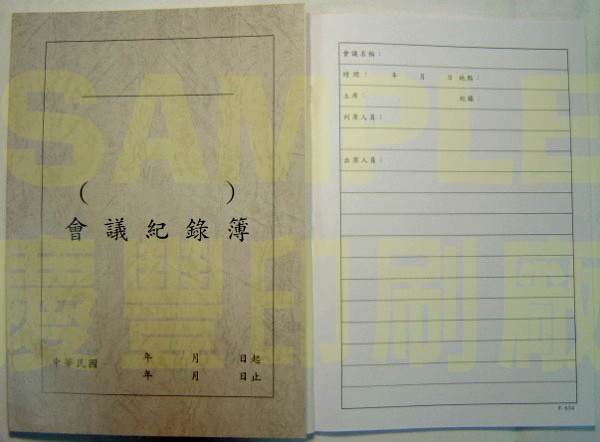 (          )
會議紀錄簿
中華民國 年 月 日起
年 月 日止
會議名稱：
時間： 年 月 日 地點：
主席： 紀錄：
列席人員：
出席人員：
SAMPLE
印刷廠